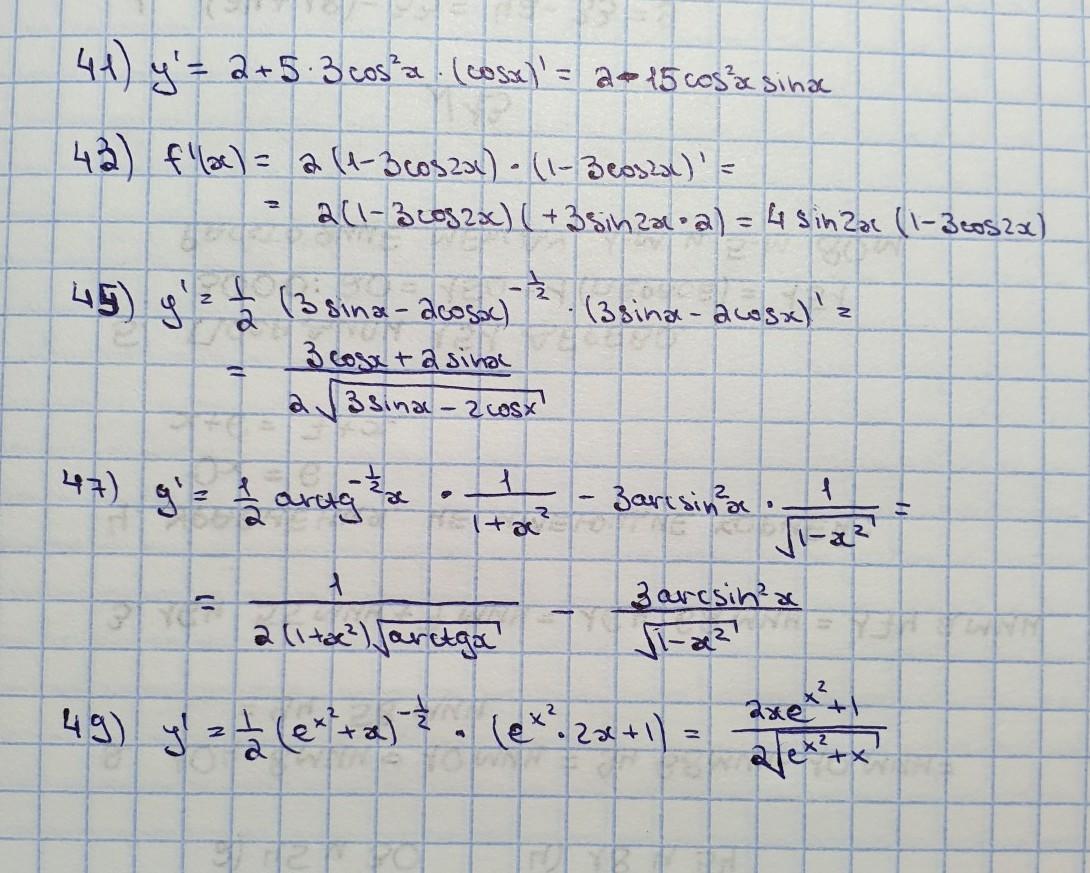 41) y' = 2+5·3cos²x·(cosx)' = 2-15cos²x sinx
43) f'(x) = 2(1-3cos2x)·(1-3cos2x)' =
= 2(1-3cos2x)(+3sin2x·2) = 4 sin2x (1-3cos2x)
45) y' = 1/2 (3sinx-2cosx)^(-1/2) · (3sinx-2cosx)' =
= (3cosx+2sinx)/(2√(3sinx-2cosx))
47) y' = 1/2 arctg^(-1/2)x · 1/(1+x²) - 3arcsin²x · 1/√(1-x²) =
= 1/(2(1+x²)√(arctgx)) - (3arcsin²x)/√(1-x²)
49) y' = 1/2 (e^(x²)+x)^(-1/2) · (e^(x²)·2x+1) = (2xe^(x²)+1)/(2√(e^(x²)+x))